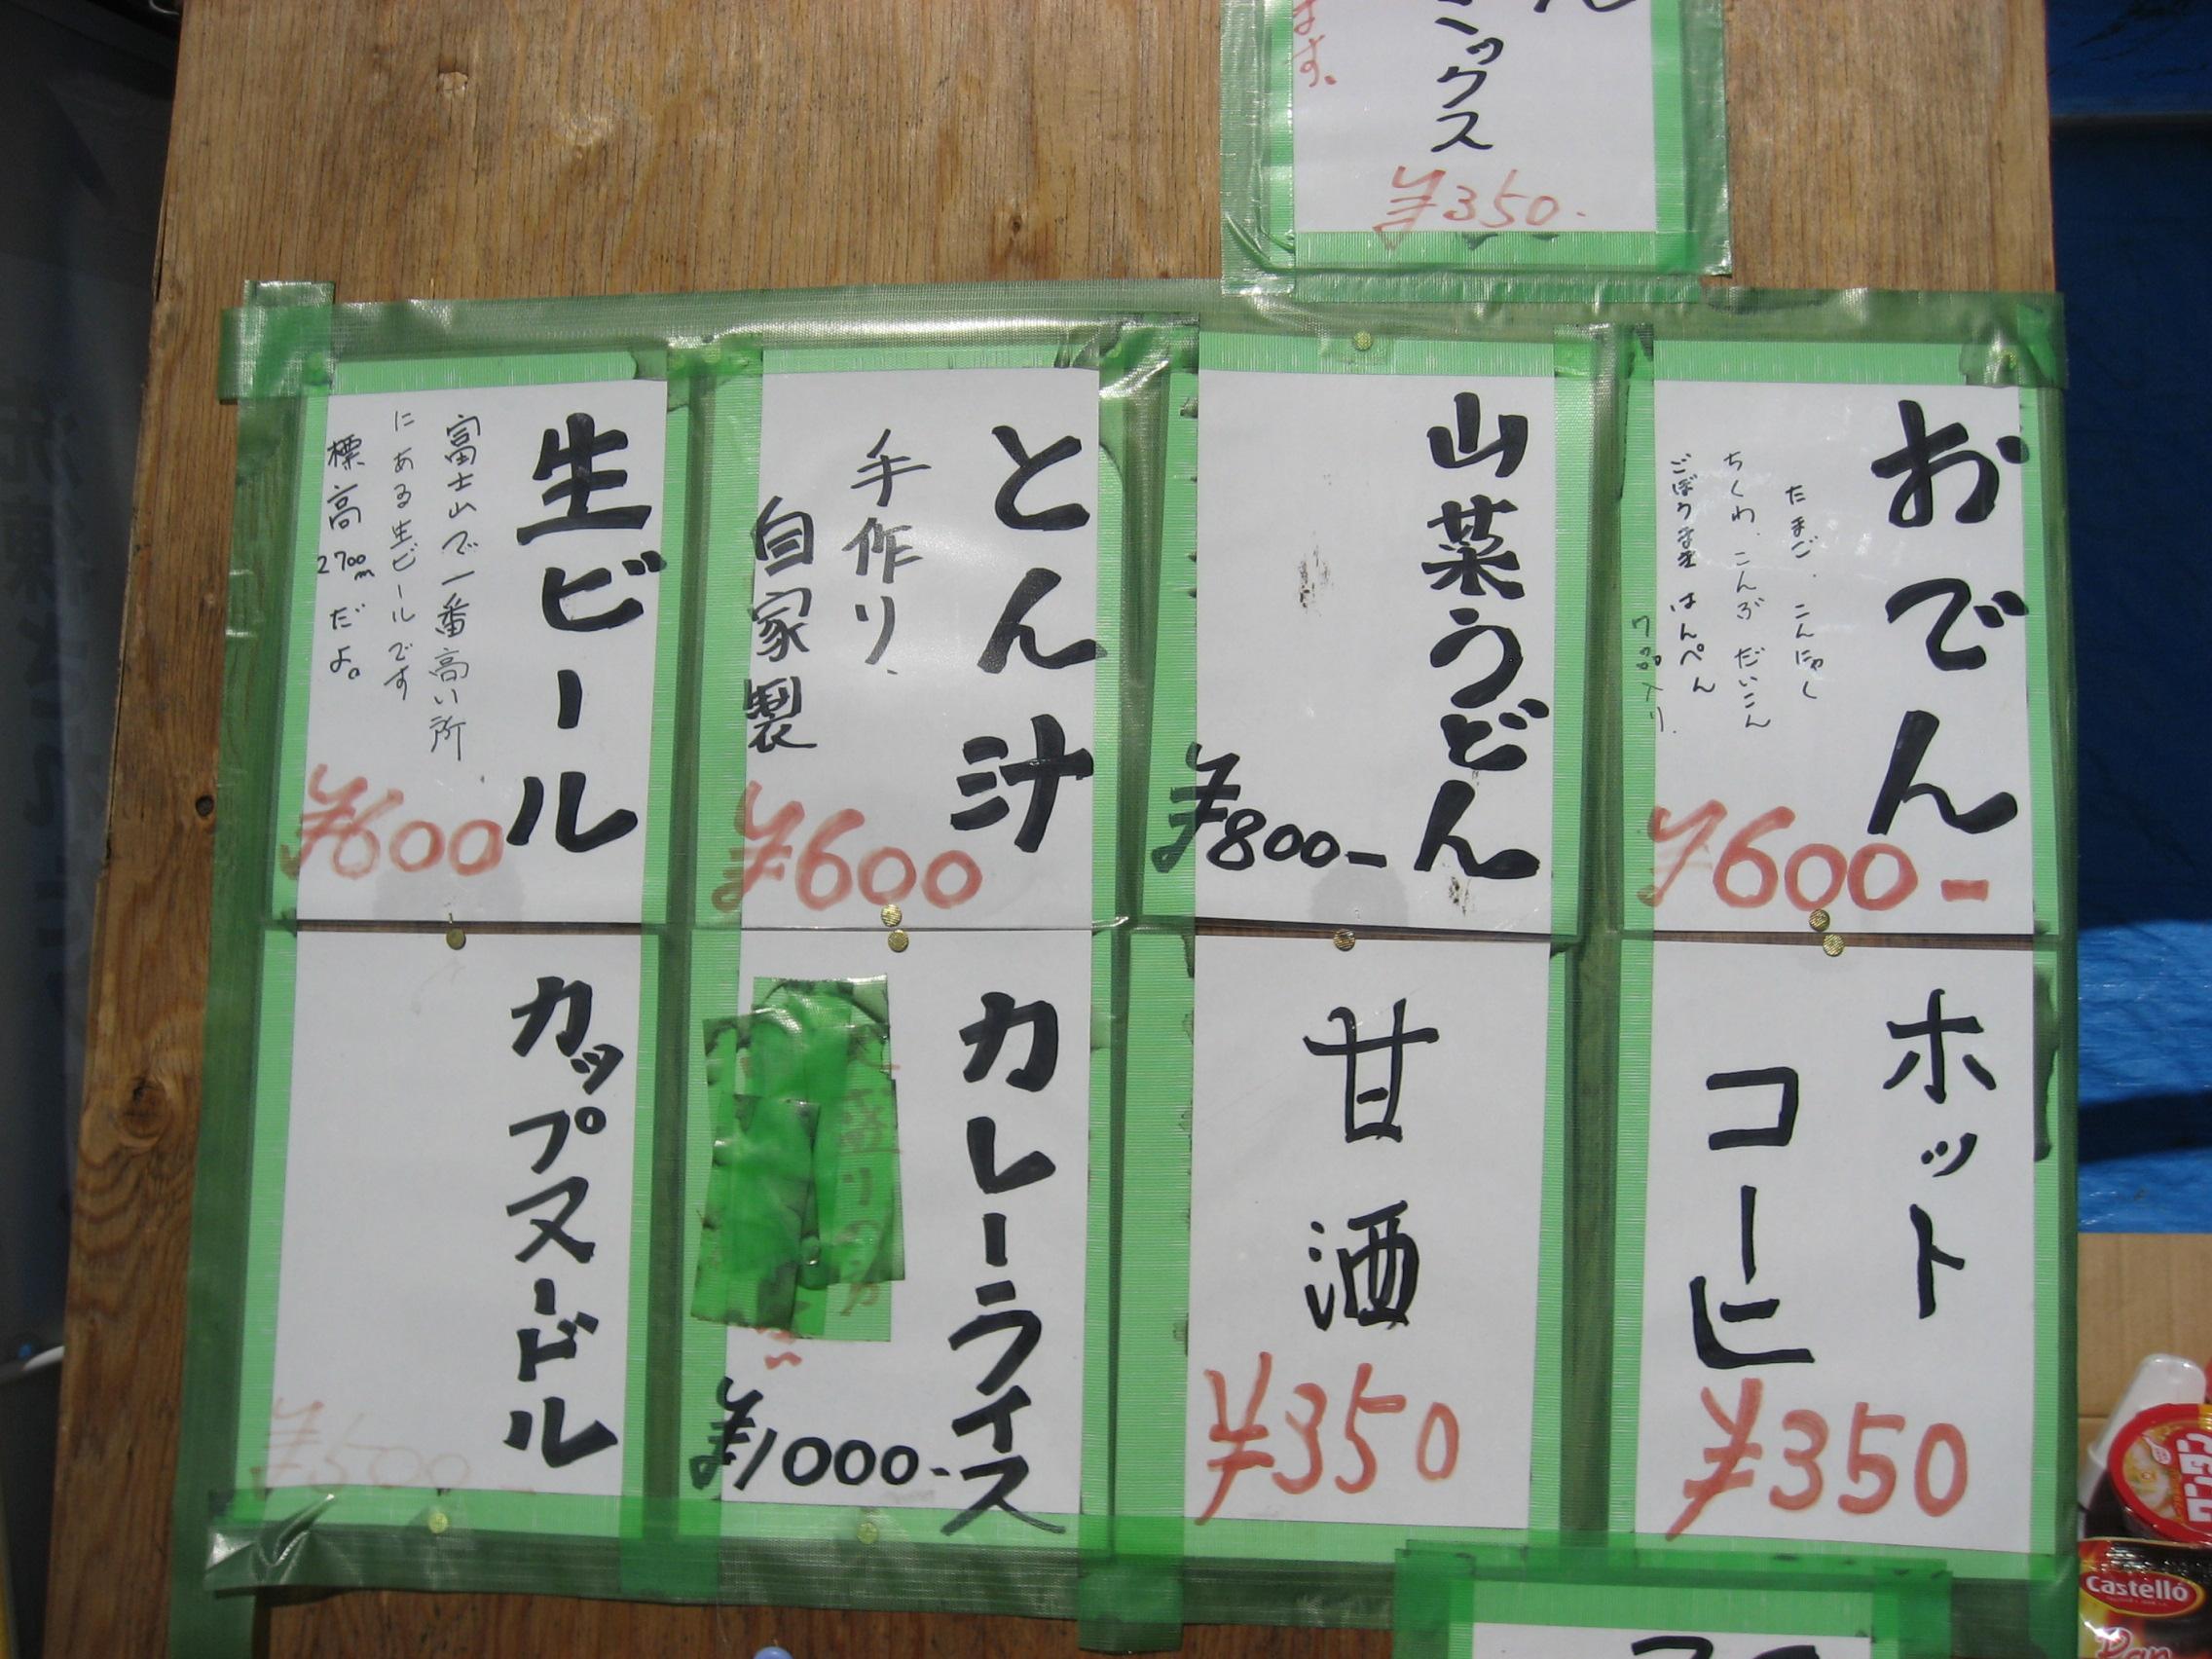 ます。
ミックス
¥350-
おでん
たまご、こんにゃく
ちくわ、こんぶ だいこん
ごぼうまき はんぺん
7品入り
¥600-
山菜うどん
¥800-
とん汁
手作り、
自家製
¥600
生ビール
富士山で一番高い所
にある生ビールです
標高2700mだよ。
¥600
ホット
コーヒー
¥350
甘酒
¥350
カレーライス
盛り
¥1000-
カップヌードル
¥500-
Castelló